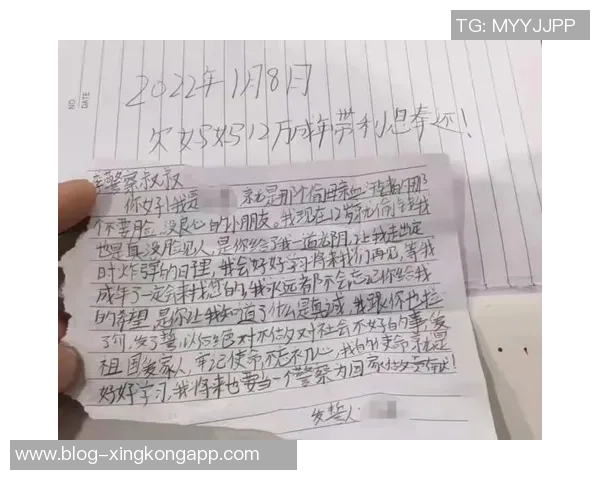 TG: MYYJJPP
NO.
DATE
2022年11月8日
欠妈妈12万成年带利息奉还!
警察叔叔
你好!我是 就是那个偷母亲血汗钱的那
个不要脸、没良心的小朋友。我现在12岁就偷钱我
也是真没脸见人,是你给了我一道光阴,让我走出定
时炸弹的心理,我会好好学习将来我们再见,等我
成年了一定会来找您的,我永远都不会忘记你给我
的希望,是你让我知道了什么是真诚,我跟你也拉
了勾,发了誓,以后绝对不做对社会不好的事,爱
祖国爱家人,牢记使命不忘初心,我的使命就是
好好学习,我将来也要当一个警察为国家做贡献!
发誓人
www.blog-xingkongapp.com